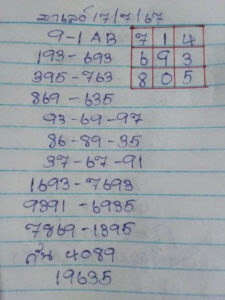 มาเลย์ 17/7/67
9-1 AB 7 1 4
193-693 6 9 3
395-763 8 0 5
869-635
93-69-97
86-89-35
37-67-91
1693-7693
9391-6935
7869-1395
ลั่น 4089
19635